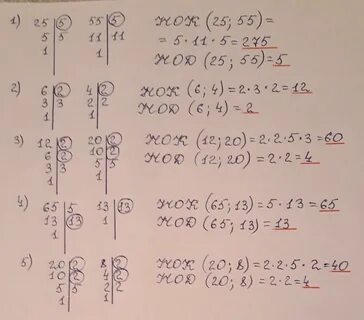 1) 25 | 5   55 | 5   НОК (25; 55) =
5 | 5   11 | 11   = 5·11·5 = 275
1 |   1 |   НОД (25; 55) = 5
2) 6 | 2   4 | 2   НОК (6; 4) = 2·3·2 = 12
3 | 3   2 | 2   НОД (6; 4) = 2
1 |   1 |
3) 12 | 2   20 | 2   НОК (12; 20) = 2·2·5·3 = 60
6 | 2   10 | 2   НОД (12; 20) = 2·2 = 4
3 | 3   5 | 5
1 |   1 |
4) 65 | 5   13 | 13   НОК (65; 13) = 5·13 = 65
13 | 13   1 |   НОД (65; 13) = 13
1 |
5) 20 | 2   8 | 2   НОК (20; 8) = 2·2·5·2 = 40
10 | 2   4 | 2   НОД (20; 8) = 2·2 = 4
5 | 5   2 | 2
1 |   1 |